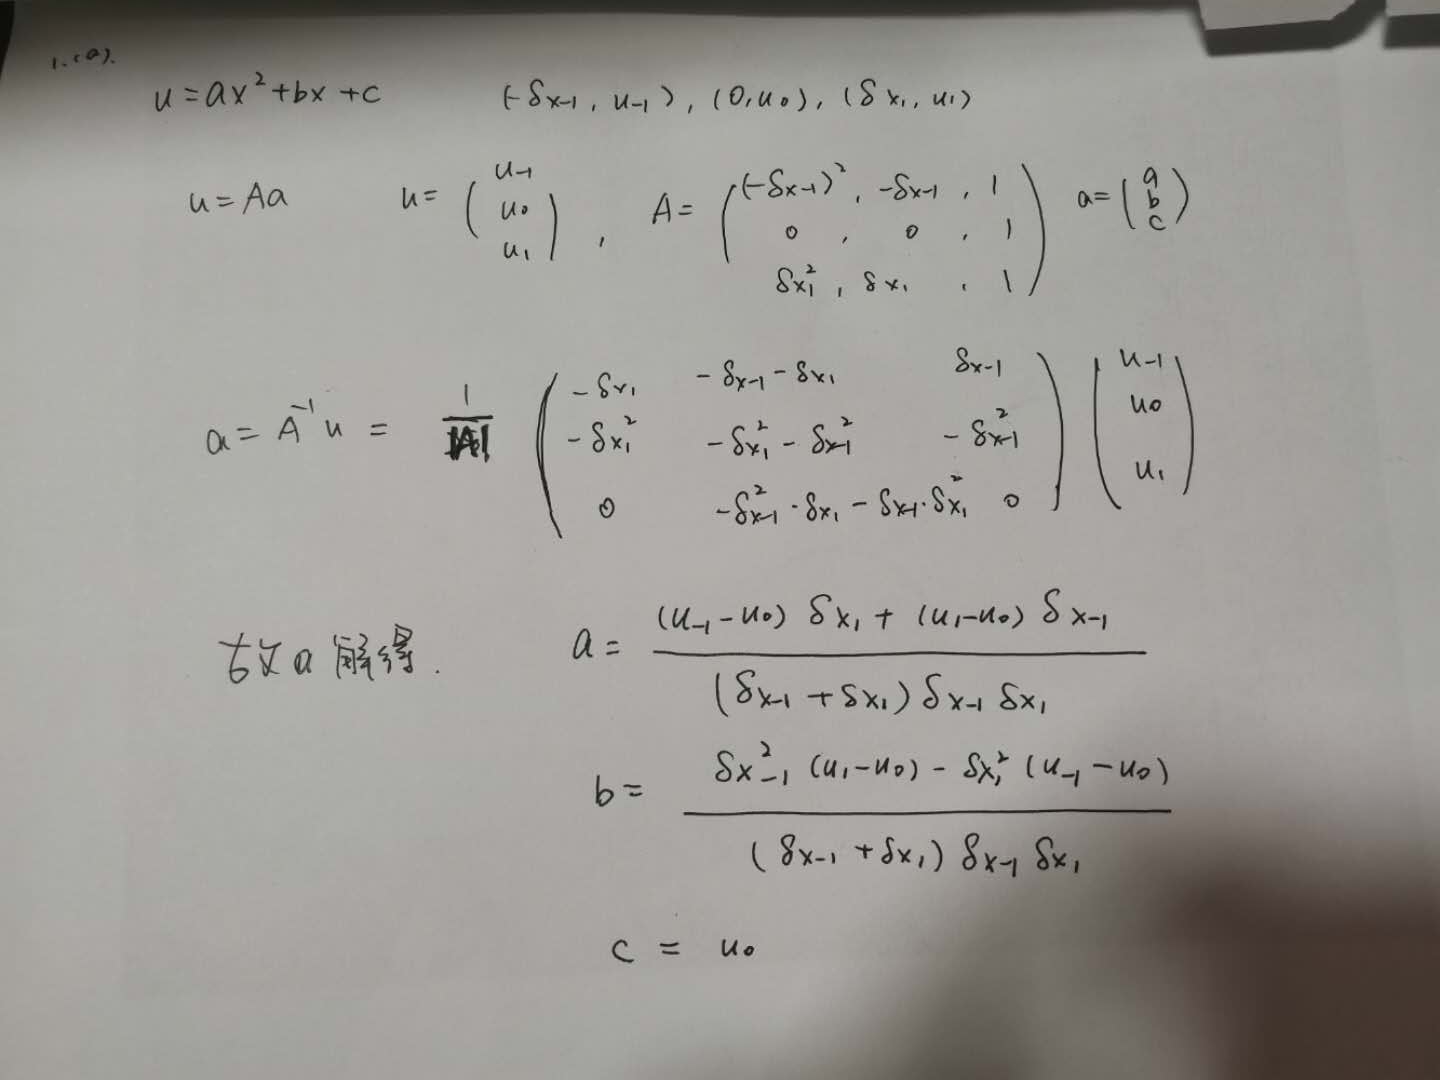 1.(a).
u=ax²+bx+c (-δx₋₁, u₋₁), (0,u₀), (δx₁, u₁)
u=Aa u=(u₋₁ u₀ u₁), A=((-δx₋₁)², -δx₋₁, 1 0, 0, 1 δx₁², δx₁, 1) a=(a b c)
a=A⁻¹u = 1/|A| (-δx₁ -δx₋₁-δx₁ δx₋₁ -δx₁² -δx₁²-δx₋₁² -δx₋₁² 0 -δx₋₁²·δx₁-δx₋₁·δx₁² 0) (u₋₁ u₀ u₁)
故a解得. a= (u₋₁-u₀) δx₁+(u₁-u₀) δx₋₁ / (δx₋₁+δx₁) δx₋₁ δx₁
b= δx₋₁² (u₁-u₀) - δx₁² (u₋₁-u₀) / (δx₋₁+δx₁) δx₋₁ δx₁
c = u₀